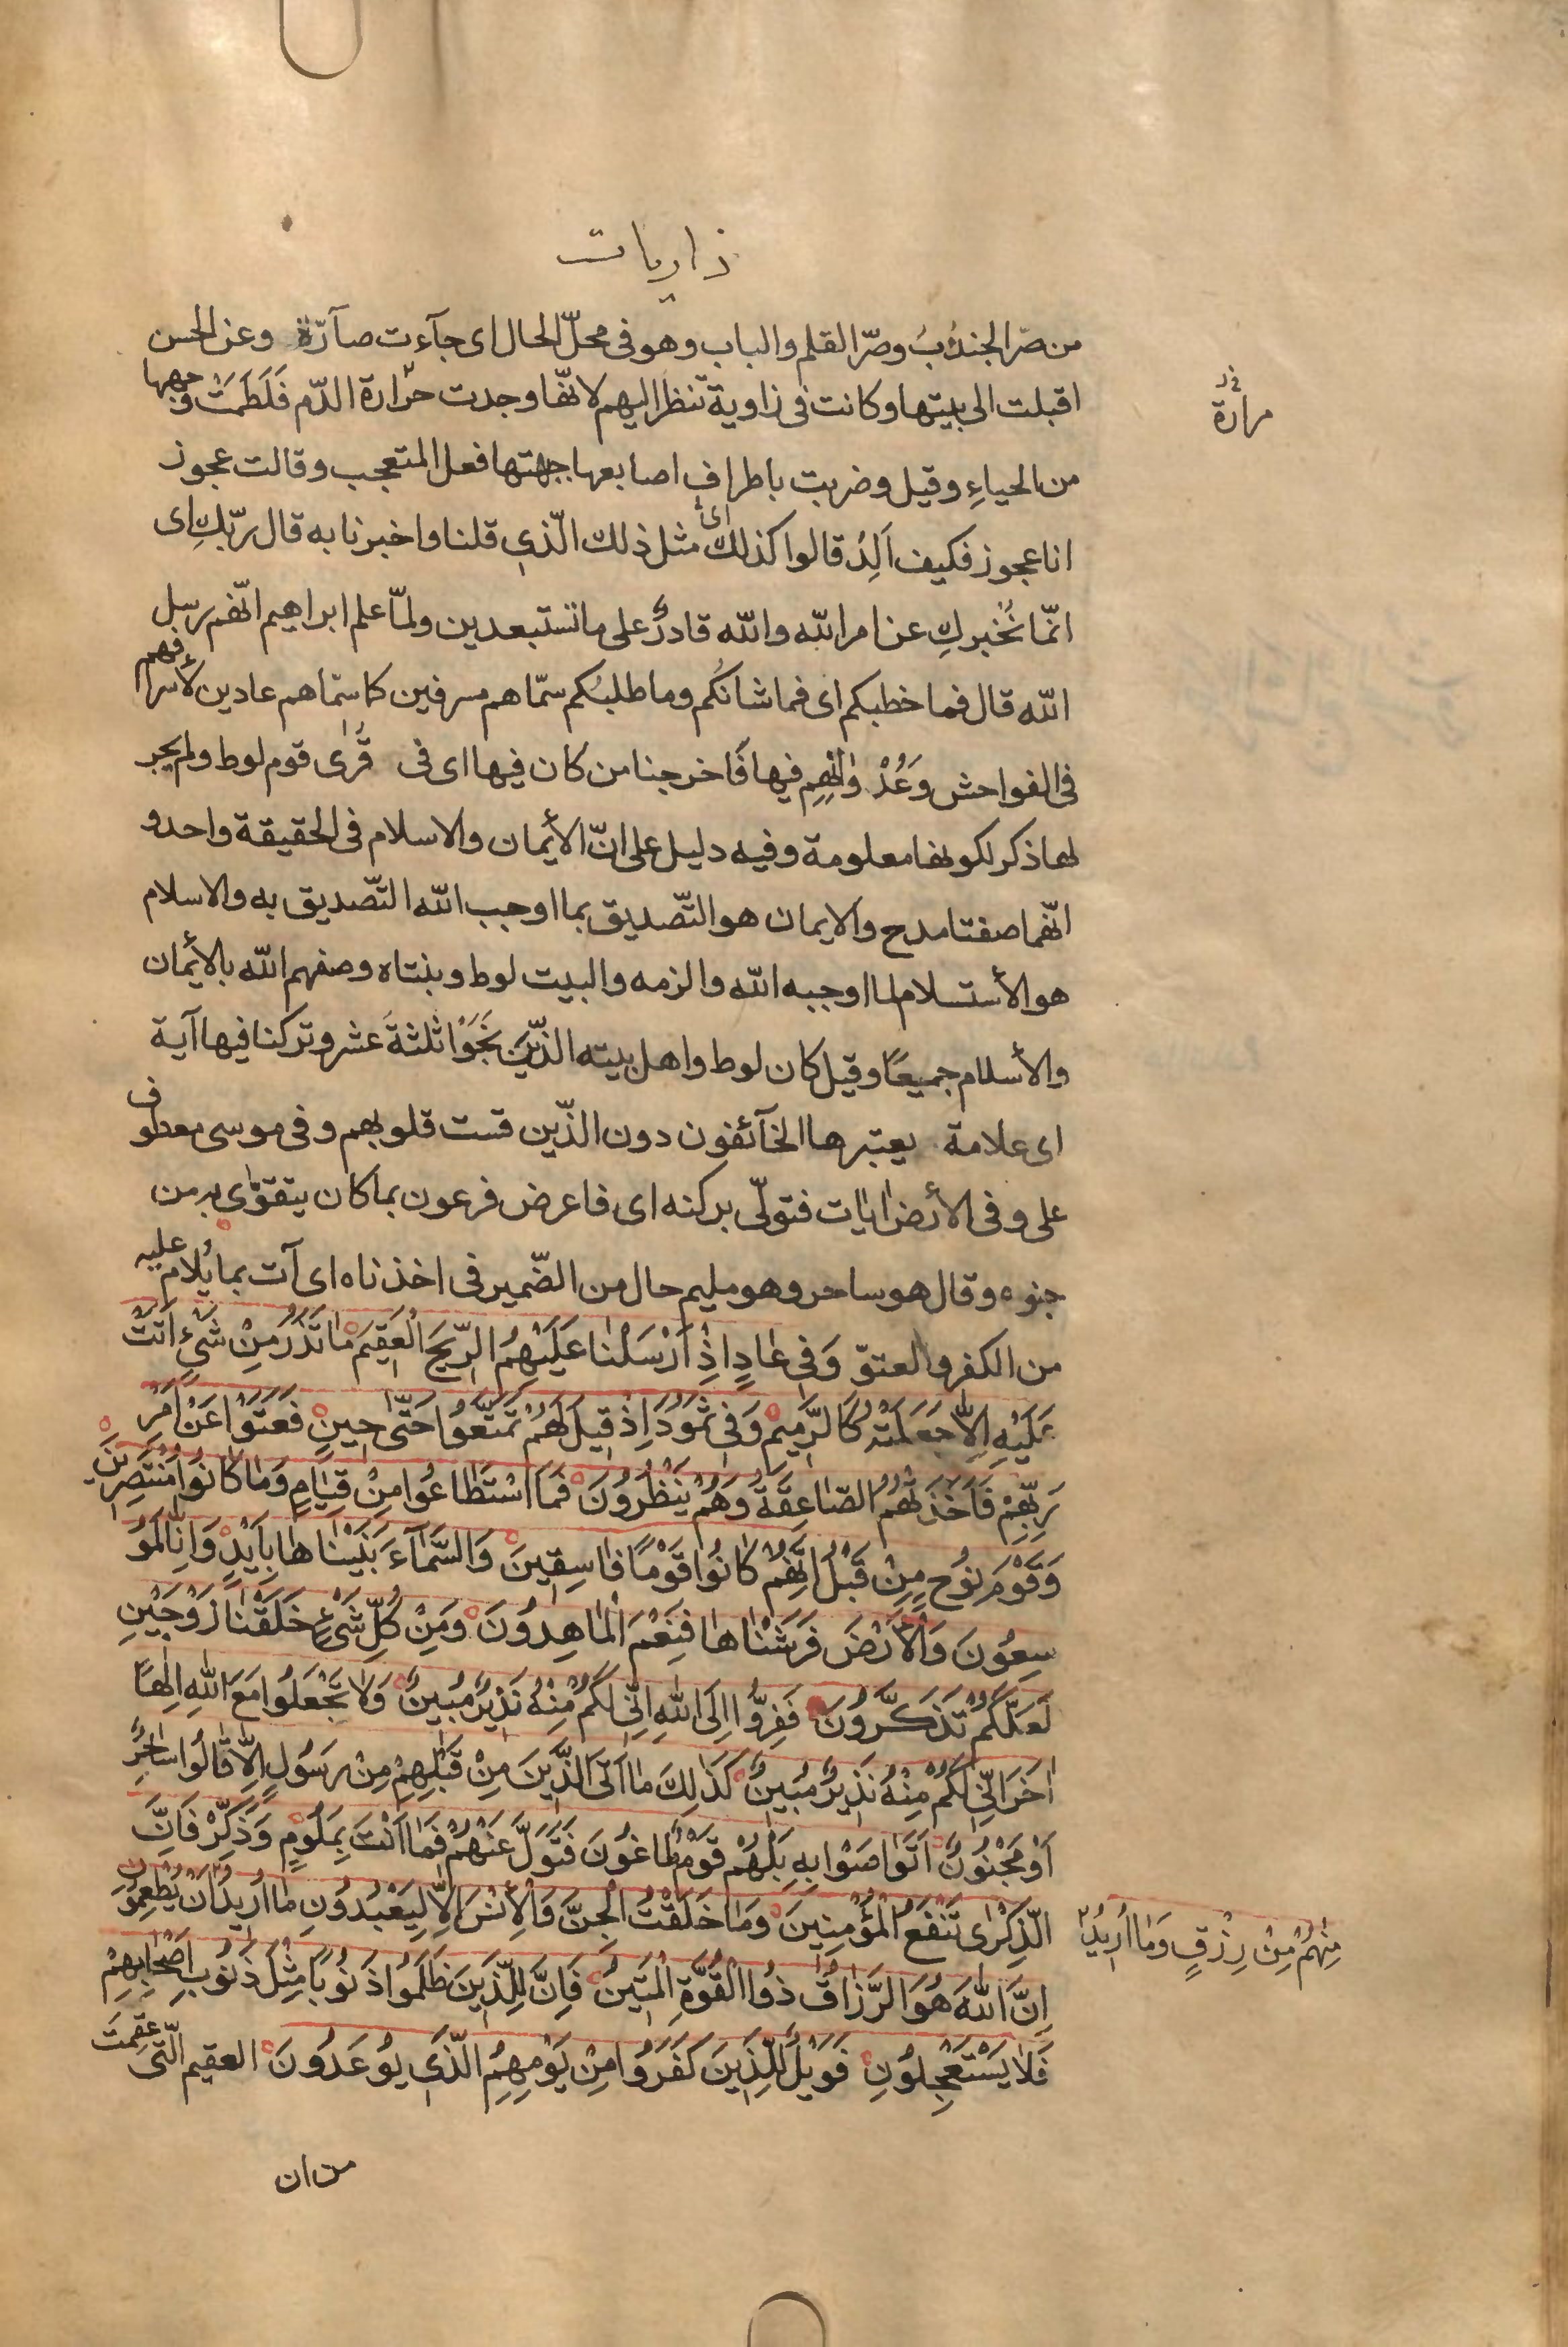 ذاريات
من صرّ الجندُبُ وصرّ القلم والباب وهو فى محلّ الحال اى جآءت صآرّة وعن الحسن
اقبلت الى بيتها وكانت فى زاوية تنظر اليهم لانّها وجدت حرّارة الدّم فَلَطَمَتْ وجهها
مرارة
من الحياءِ وقيل وضربت باطراف اصابعها جبهتها فعل المتعجب وقالت عجوز
انا عجوز فكيف اَلِدُ قالوا كذلك اى مثل ذلك الّذى قلنا واخبرنا به قال ربّكِ اى
انّما نُخبركِ عن امر الله والله قادرٌ على ما تستبعدين ولمّا علم ابراهيم انّهم رسل
الله قال فما خطبكم اى فما شانكُم وما طلبُكم سمّاهم مسرفين كما سمّاهم عادين لأسرافهم
فى الفواحش وَعُدْوانِهِم فيها فَاخرجنا من كان فيها اى فى قُرٰى قوم لوط ولم يجر
لها ذكر لكونها معلومة وفيه دليل على انّ الأيمان والاسلام فى الحقيقة واحد و
انّهما صفتا مدح والايمان هو التّصديق بما اوجب الله التّصديق به والاسلام
هو الأستسلام لما اوجبه الله والزمه والبيت لوط وبنتاه وصفهم الله بالأيمان
والأسلام جميعًا وقيل كان لوط واهل بيته الّذين نَجَوْا ثلثةَ عشر وتركنا فيها آية
اى علامة يعتبرها الخآئفون دون الّذين قست قلوبهم وفى موسى معطوف
على وفى الأرض اٰيات فتولّى بركنه اى فاعرض فرعون بما كان يتقوّى به من
جنوده وقال هو ساحر وهو مليم حال من الضّمير فى اخذناه اى آت بما يُلام عليه
من الكفر والعتوّ وَفى عٰادٍ اِذْ اَرْسَلْنٰا عَلَيْهِمُ الرّيحَ الْعَقيمَ مٰا تَذَرُ مِنْ شَىْءٍ اَتَتْ
عَلَيْهِ اِلاّٰ جَعَلَتْهُ كَالرَّميمِ وَفى ثَمُودَ اِذْ قيلَ لَهُمْ تَمَتَّعُوا حَتّٰى حينٍ فَعَتَوْا عَنْ اَمْرِ
رَبِّهِمْ فَاَخَذَتْهُمُ الصّٰاعِقَةُ وَهُمْ يَنْظُرُونَ فَمَا اسْتَطٰاعُوا مِنْ قِيٰامٍ وَمٰا كٰانُوا مُنْتَصِرينَ
وَقَوْمَ نُوحٍ مِنْ قَبْلُ اِنَّهُمْ كٰانُوا قَوْمًا فٰاسِقينَ وَالسَّمٰآءَ بَنَيْنٰاهٰا بِاَيْدٍ وَاِنّٰا لَمُو
سِعُونَ وَالْأَرْضَ فَرَشْنٰاهٰا فَنِعْمَ الْمٰاهِدُونَ وَمِنْ كُلِّ شَىْءٍ خَلَقْنٰا زَوْجَيْنِ
لَعَلَّكُمْ تَذَكَّرُونَ فَفِرُّوا اِلَى اللهِ اِنّى لَكُمْ مِنْهُ نَذيرٌ مُبينٌ وَلاٰ تَجْعَلُوا مَعَ اللهِ اِلٰهًا
اٰخَرَ اِنّى لَكُمْ مِنْهُ نَذيرٌ مُبينٌ كَذٰلِكَ مٰا اَتَى الَّذينَ مِنْ قَبْلِهِمْ مِنْ رَسُولٍ اِلاّٰ قٰالُوا سٰاحِرٌ
اَوْ مَجْنُونٌ اَتَوٰاصَوْا بِهِ بَلْ هُمْ قَوْمٌ طٰاغُونَ فَتَوَلَّ عَنْهُمْ فَمٰا اَنْتَ بِمَلُومٍ وَذَكِّرْ فَاِنَّ
الذِّكْرٰى تَنْفَعُ الْمُؤْمِنينَ وَمٰا خَلَقْتُ الْجِنَّ وَالْأِنْسَ اِلاّٰ لِيَعْبُدُونِ مٰا اُريدُ اَنْ يُطْعِمُونِ
مِنْهُمْ مِنْ رِزْقٍ وَمٰا اُريدُ
اِنَّ اللهَ هُوَ الرَّزّٰاقُ ذُوا الْقُوَّةِ الْمَتينُ فَاِنَّ لِلَّذينَ ظَلَمُوا ذَنُوبًا مِثْلَ ذَنُوبِ اَصْحٰابِهِمْ
فَلاٰ يَسْتَعْجِلُونِ فَوَيْلٌ لِلَّذينَ كَفَرُوا مِنْ يَوْمِهِمُ الَّذى يُوعَدُونَ العقيم الّتى عقمت
من ان